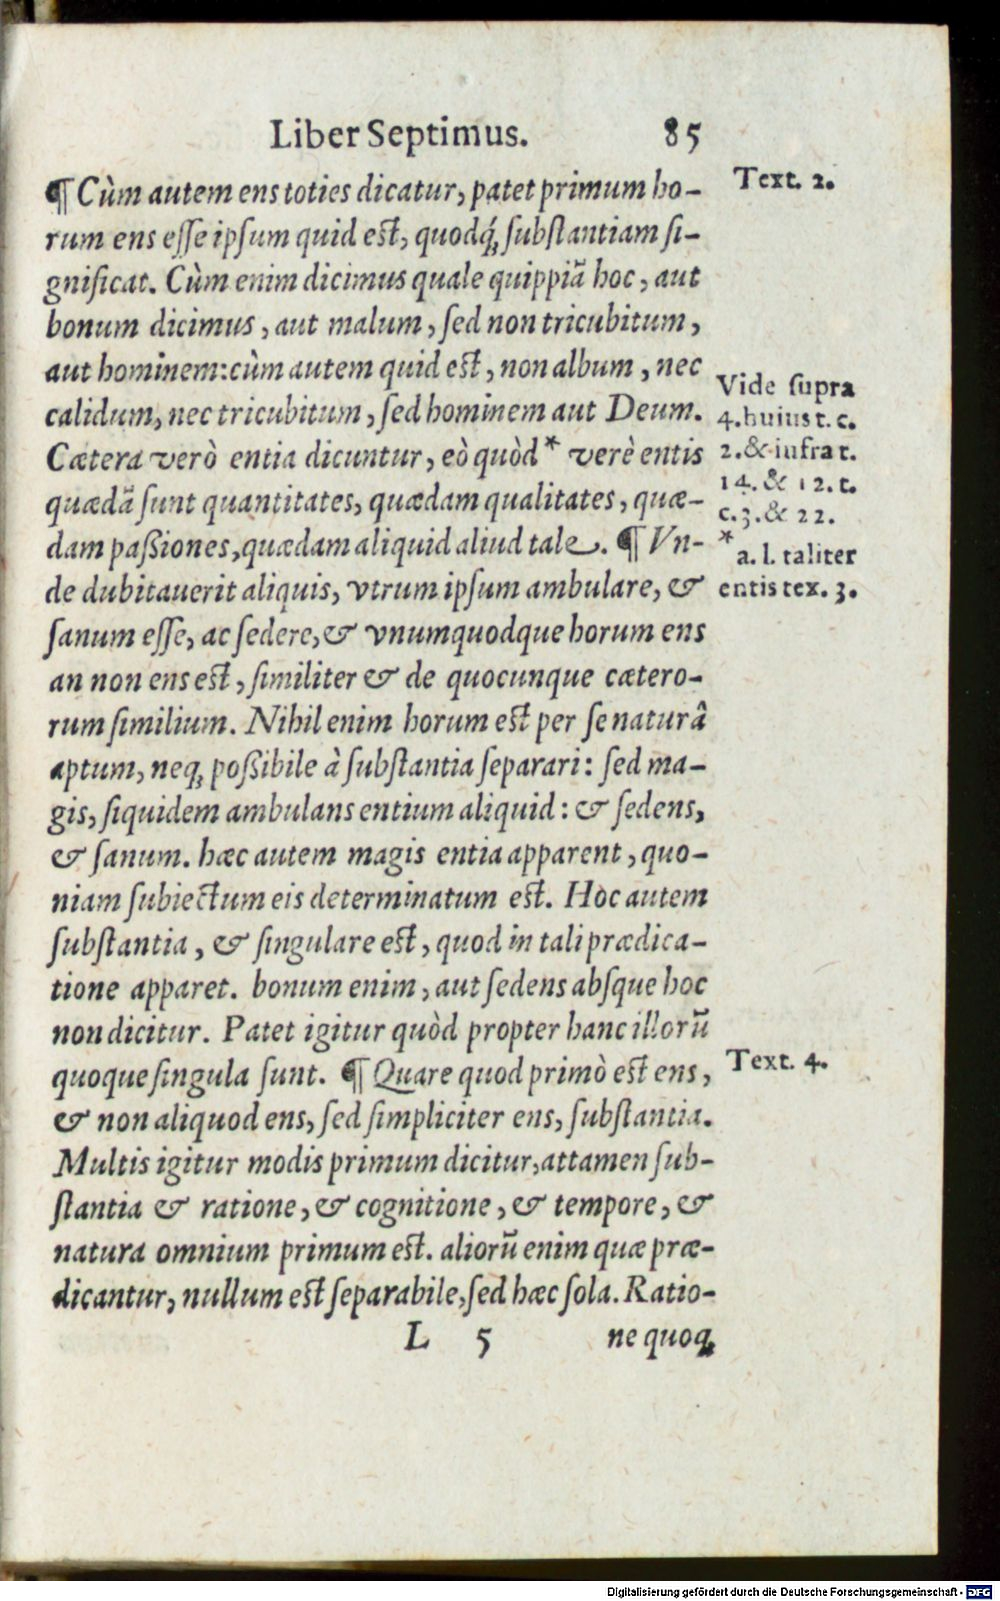 Liber Septimus. 85
¶ Cùm autem ens toties dicatur, patet primum ho-
rum ens esse ipsum quid est, quodq́; substantiam si-
gnificat. Cùm enim dicimus quale quippiã hoc, aut
bonum dicimus, aut malum, sed non tricubitum,
aut hominem: cùm autem quid est, non album, nec
calidum, nec tricubitum, sed hominem aut Deum.
Cætera verò entia dicuntur, eò quòd * verè entis
quædã sunt quantitates, quædam qualitates, quæ-
dam passiones, quædam aliquid aliud tale. ¶ Vn-
de dubitauerit aliquis, vtrum ipsum ambulare, &
sanum esse, ac sedere, & vnumquodque horum ens
an non ens est, similiter & de quocunque cætero-
rum similium. Nihil enim horum est per se naturâ
aptum, neq; possibile à substantia separari: sed ma-
gis, siquidem ambulans entium aliquid: & sedens,
& sanum. hæc autem magis entia apparent, quo-
niam subiectum eis determinatum est. Hoc autem
substantia, & singulare est, quod in tali prædica-
tione apparet. bonum enim, aut sedens absque hoc
non dicitur. Patet igitur quòd propter hanc illorũ
quoque singula sunt. ¶ Quare quod primò est ens,
& non aliquod ens, sed simpliciter ens, substantia.
Multis igitur modis primum dicitur, attamen sub-
stantia & ratione, & cognitione, & tempore, &
natura omnium primum est. aliorũ enim quæ præ-
dicantur, nullum est separabile, sed hæc sola. Ratio-
L 5 ne quoq;
Text. 2.
Vide supra
4. huius t. c.
2. & infra t.
14. & 12. t.
c. 3. & 22.
* a. l. taliter
entis tex. 3.
Text. 4.
Digitalisierung gefördert durch die Deutsche Forschungsgemeinschaft - DFG